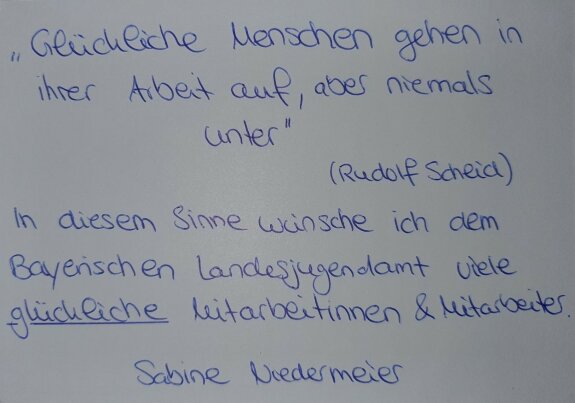 „Glückliche Menschen gehen in
ihrer Arbeit auf, aber niemals
unter"
(Rudolf Scheid)
In diesem Sinne wünsche ich dem
Bayerischen Landesjugendamt viele
glückliche Mitarbeitinnen & Mitarbeiter.
Sabine Niedermeier